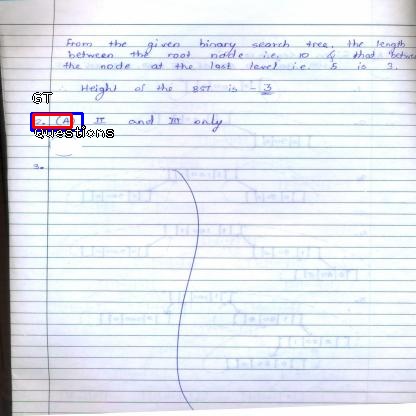 From the given binary search tree, the length
between the root node i.e. 10 & that between
the node at the last level i.e. 5 is 3.
∴ Height of the BST is - 3
GT
2. (A) II and III only
Questions
3.